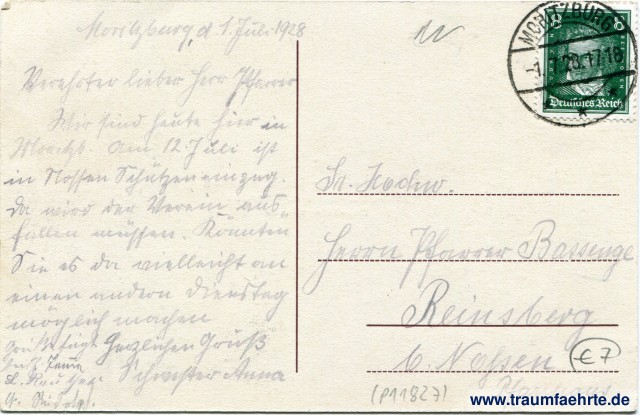 Moritzburg, d. 1. Juli 1928
Verehrter lieber Herr Pfarrer
Wir sind heute hier in
Moritzb. Am 12 Juli ist
in Nossen Schützeneinzug.
Da wird der Verein aus-
fallen müssen. Könnten
Sie es da vielleicht an
einen andern Dienstag
möglich machen
Herzlichen Gruß
Schwester Anna
MORITZBURG
-1.7.28.17-18
8
8
Deutsches Reich
Sr. Hochw.
Herrn Pfarrer Bassenge
Reinsberg
b. Nossen
€7
(P11827)
www.traumfaehrte.de